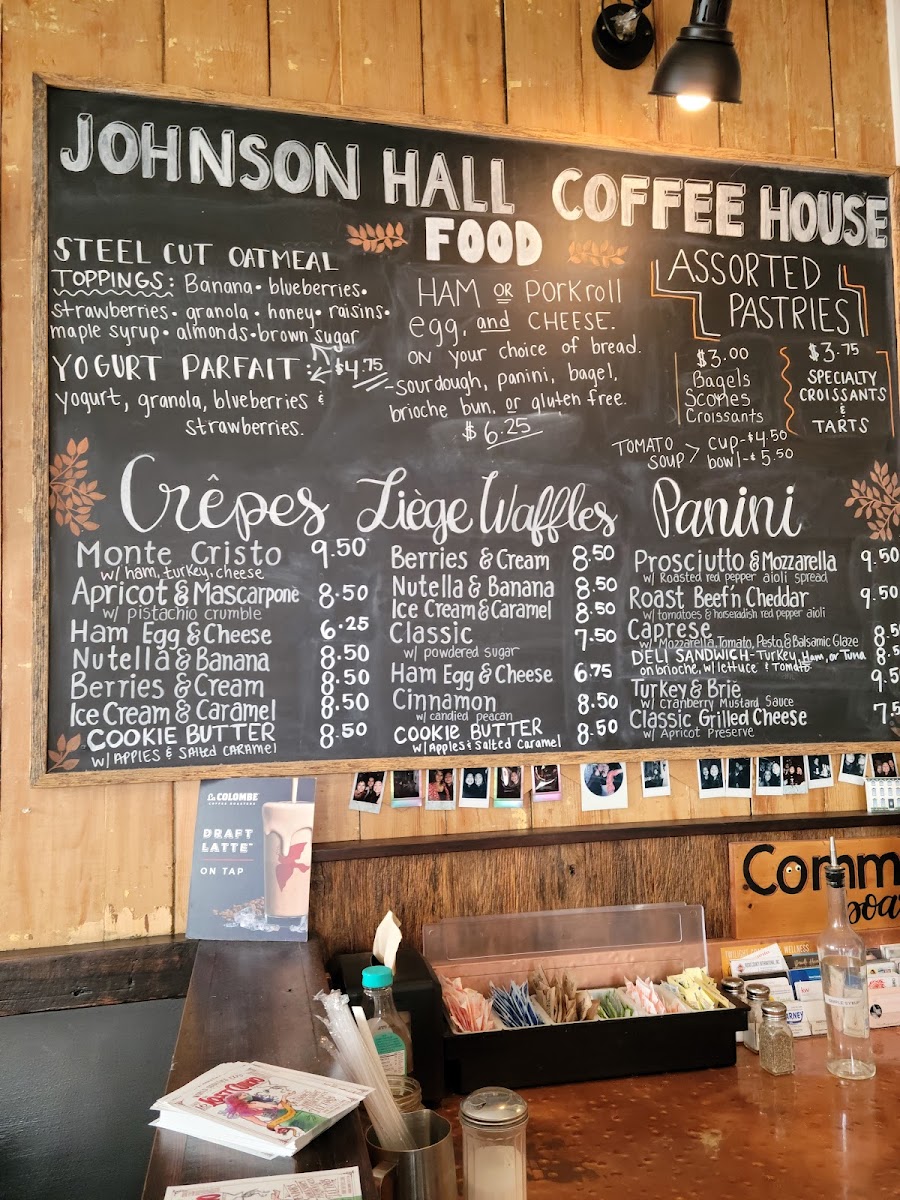 JOHNSON HALL COFFEE HOUSE
FOOD
STEEL CUT OATMEAL
TOPPINGS: Banana • blueberries •
strawberries • granola • honey • raisins •
maple syrup • almonds • brown sugar
YOGURT PARFAIT: $4.75
yogurt, granola, blueberries &
strawberries.
HAM OR Porkroll
egg, and CHEESE.
ON your choice of bread.
-sourdough, panini, bagel,
brioche bun, or gluten free.
$6.25
ASSORTED
PASTRIES
$3.00
Bagels
Scones
Croissants
$3.75
SPECIALTY
CROISSANTS
&
TARTS
TOMATO SOUP > cup-$4.50
bowl-$5.50
Crêpes
Monte Cristo 9.50
w/ ham, turkey, cheese
Apricot & Mascarpone 8.50
w/ pistachio crumble
Ham Egg & Cheese 6.25
Nutella & Banana 8.50
Berries & Cream 8.50
Ice Cream & Caramel 8.50
COOKIE BUTTER 8.50
W/ APPLES & SAlted CARAMEl
Liège Waffles
Berries & Cream 8.50
Nutella & Banana 8.50
Ice Cream & Caramel 8.50
Classic 7.50
w/ powdered sugar
Ham Egg & Cheese 6.75
Cinnamon 8.50
w/ candied peacan
COOKIE BUTTER 8.50
W/ Apples & Salted Caramel
Panini
Prosciutto & Mozzarella 9.50
w/ Roasted red pepper aioli spread
Roast Beef'n Cheddar 9.50
w/ tomatoes & horseradish red pepper aioli
Caprese 8.5
w/ Mozzarella, Tomato, Pesto, & Balsamic Glaze
DELI SANDWICH - Turkey, Ham, or Tuna 8.5
on brioche, w/ lettuce & Tomato
Turkey & Brie 9.5
w/ Cranberry Mustard Sauce
Classic Grilled Cheese 7.5
w/ Apricot Preserve
La COLOMBE
COFFEE ROASTERS
DRAFT
LATTE™
ON TAP
Comm
boa
WELLNESS